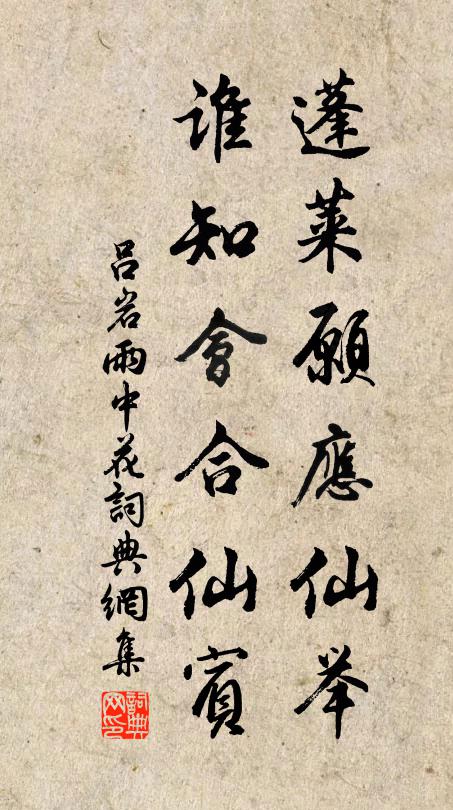 蓬萊願應仙举
誰知會合仙賓
吕岩雨中花詞典網集
詞典网印